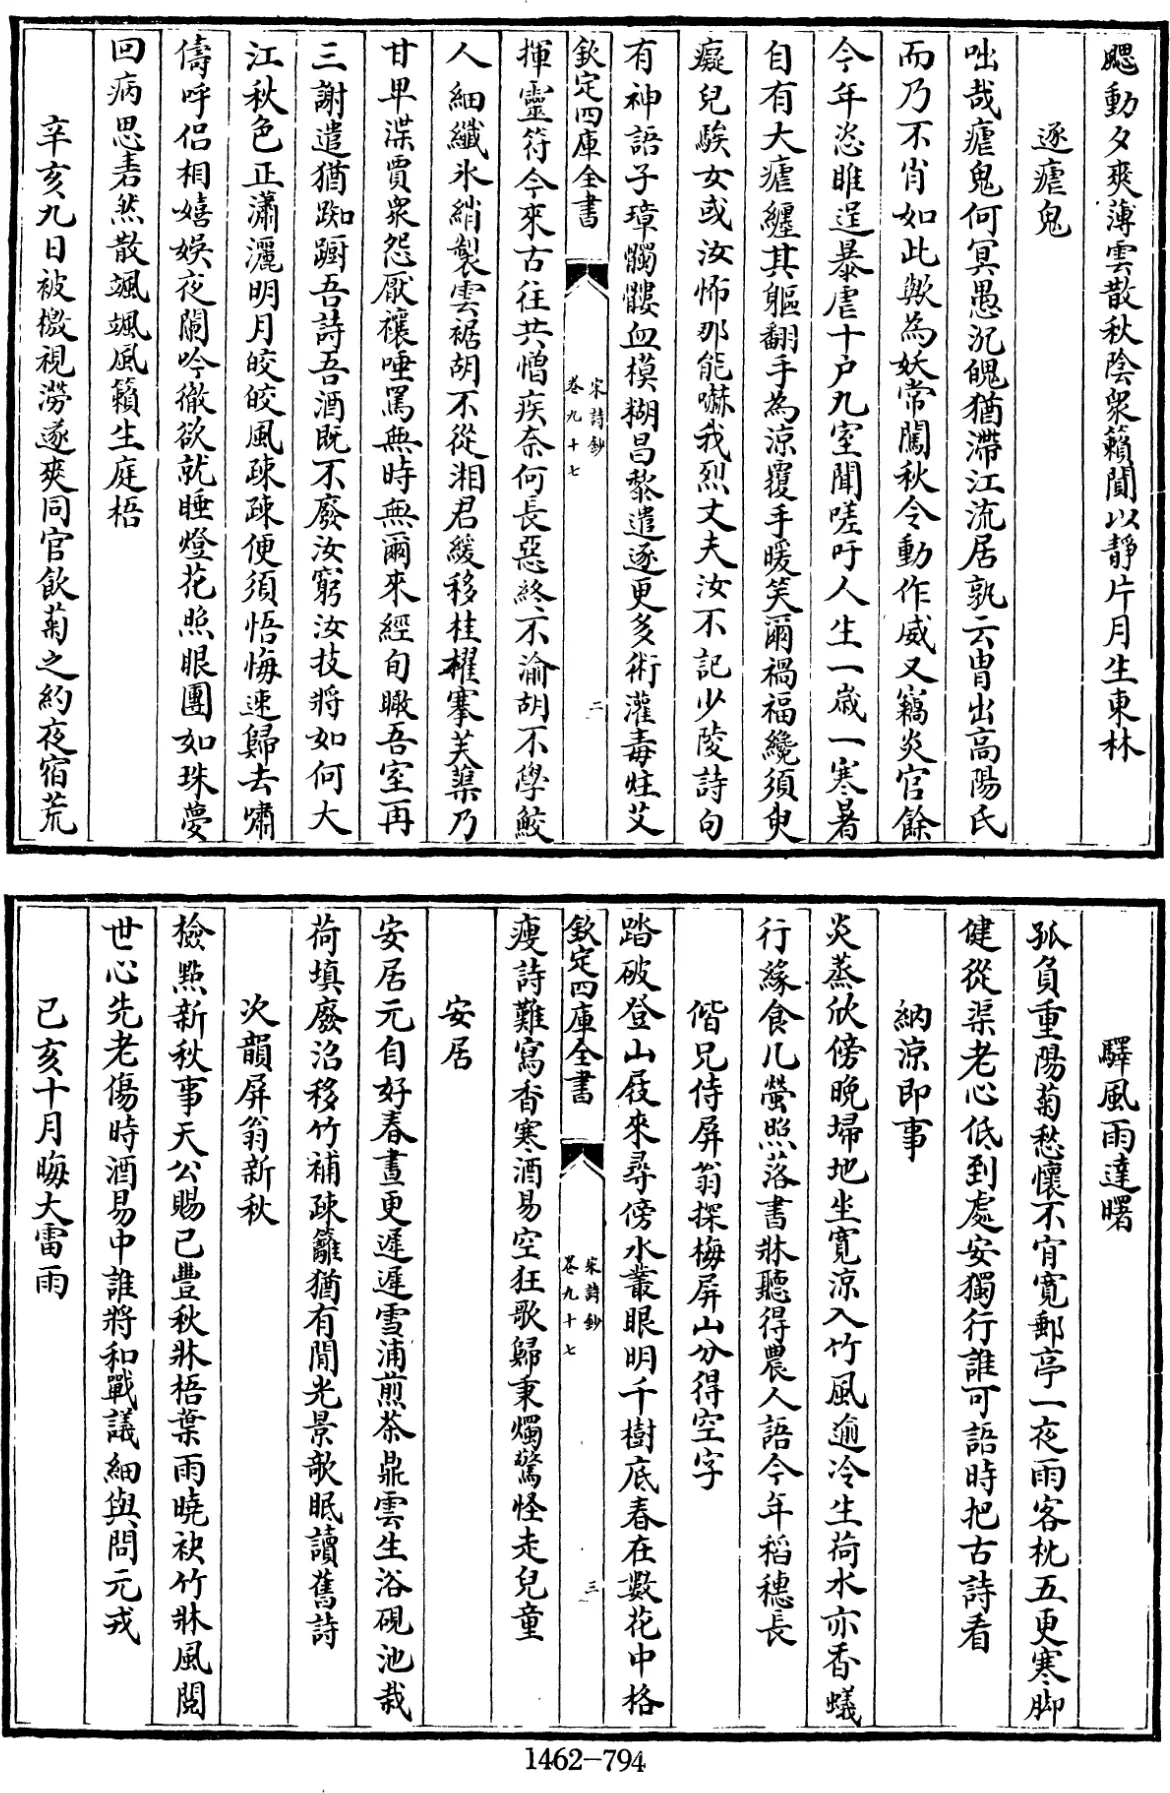 颸動夕爽薄雲散秋陰衆籟閴以靜片月生東林
逐瘧鬼
咄哉瘧鬼何冥愚沉魄猶滯江流居孰云胄出高陽氏
而乃不肖如此歟為妖常闖秋令動作威又竊炎官餘
今年恣睢逞暴虐十户九室聞嗟吁人生一歳一寒暑
自有大瘧纏其軀翻手為涼覆手暖笑爾禍福纔須臾
癡兒騃女或汝怖那能嚇我烈丈夫汝不記少陵詩句
有神語子璋髑髏血模糊昌黎遣逐更多術灌毒炷艾
欽定四庫全書
宋詩鈔
卷九十七
二
揮靈符今來古往共憎疾奈何長惡終不渝胡不學鮫
人細纖氷綃製雲裾胡不從湘君緩移桂櫂搴芙蕖乃
甘卑渫賈衆怨厭禳唾罵無時無爾來經旬瞰吾室再
三謝遣猶踟蹰吾詩吾酒既不廢汝窮汝技將如何大
江秋色正瀟灑明月皎皎風疎疎便須悟悔速歸去嘯
儔呼侣相嬉娱夜闌吟徹欲就睡燈花照眼團如珠夢
回病思砉然散颯颯風籟生庭梧
辛亥九日被檄視澇遂爽同官飲菊之約夜宿荒
驛風雨達曙
孤負重陽菊愁懷不肯寛郵亭一夜雨客枕五更寒脚
健從渠老心低到處安獨行誰可語時把古詩看
納涼即事
炎蒸欣傍晚埽地坐寛涼入竹風逾冷生荷水亦香蟻
行緣食几螢照落書牀聽得農人語今年稻穗長
偕兄侍屏翁探梅屏山分得空字
踏破登山屐來尋傍水叢眼明千樹底春在數花中格
欽定四庫全書
宋詩鈔
卷九十七
三
瘦詩難寫香寒酒易空狂歌歸秉燭驚怪走兒童
安居
安居元自好春晝更遲遲雪浦煎茶鼎雲生浴硯池栽
荷填廢沼移竹補疎籬猶有閒光景欹眠讀舊詩
次韻屏翁新秋
檢㸃新秋事天公賜已豐秋牀梧葉雨曉袂竹牀風閲
世心先老傷時酒易中誰將和戰議細與問元戎
己亥十月晦大雷雨
1462—794